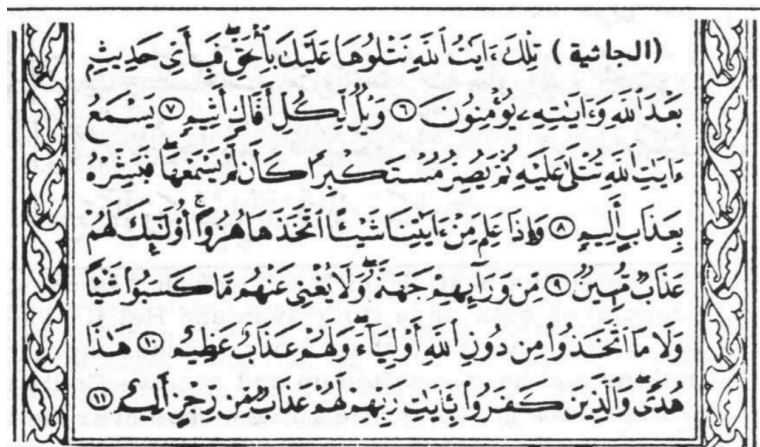 (الجاثية) تِلْكَ ءَايَٰتُ ٱللَّهِ نَتْلُوهَا عَلَيْكَ بِٱلْحَقِّ ۖ فَبِأَىِّ حَدِيثٍۭ
بَعْدَ ٱللَّهِ وَءَايَٰتِهِۦ يُؤْمِنُونَ ٦ وَيْلٌ لِّكُلِّ أَفَّاكٍ أَثِيمٍ ٧ يَسْمَعُ
ءَايَٰتِ ٱللَّهِ تُتْلَىٰ عَلَيْهِ ثُمَّ يُصِرُّ مُسْتَكْبِرًا كَأَن لَّمْ يَسْمَعْهَا ۖ فَبَشِّرْهُ
بِعَذَابٍ أَلِيمٍ ٨ وَإِذَا عَلِمَ مِنْ ءَايَٰتِنَا شَيْـًٔا ٱتَّخَذَهَا هُزُوًا ۚ أُو۟لَٰٓئِكَ لَهُمْ
عَذَابٌ مُّهِينٌ ٩ مِّن وَرَآئِهِمْ جَهَنَّمُ ۖ وَلَا يُغْنِى عَنْهُم مَّا كَسَبُوا۟ شَيْـًٔا
وَلَا مَا ٱتَّخَذُوا۟ مِن دُونِ ٱللَّهِ أَوْلِيَآءَ ۖ وَلَهُمْ عَذَابٌ عَظِيمٌ ١٠ هَٰذَا
هُدًى ۖ وَٱلَّذِينَ كَفَرُوا۟ بِـَٔايَٰتِ رَبِّهِمْ لَهُمْ عَذَابٌ مِّن رِّجْزٍ أَلِيمٌ ١١